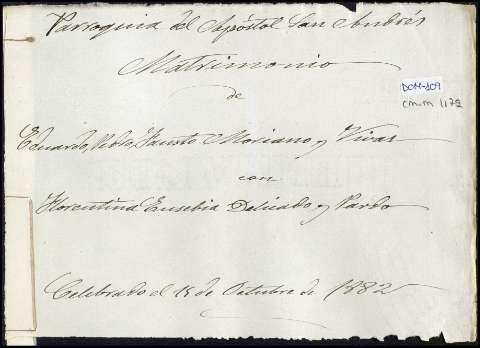 Parroquia del Apóstol San Andrés
Matrimonio
DOM-109
cm.m 1172
de
Eduardo, Pablo, Fausto Moriano y Vivas
con
Florentina Eusebia Delicado y Pardo
Celebrado el 18 de Octubre de 1882